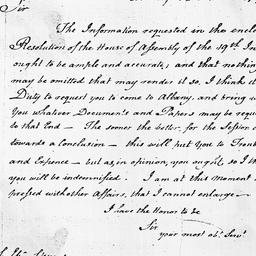 Sir
The Information requested in the enclo
Resolution of the House of Assembly of the 19th In
ought to be ample and accurate, and that nothing
may be omitted that may render it so, I think it
Duty to request you to come to Albany, and bring w
you whatever Documents and Papers may be reque
to that End — The sooner the better, for the Session d
towards a Conclusion — this will put you to Troub
and Expence — but as in opinion, you ought, so I th
you will be indemnified. I am at this moment
pressed with other Affairs, that I cannot enlarge —
I have the Honor to be
Sir
your most obt. Servt